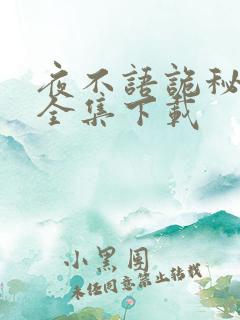 夜不語詭秘
全集下載
小黑围
未经同意禁止转载